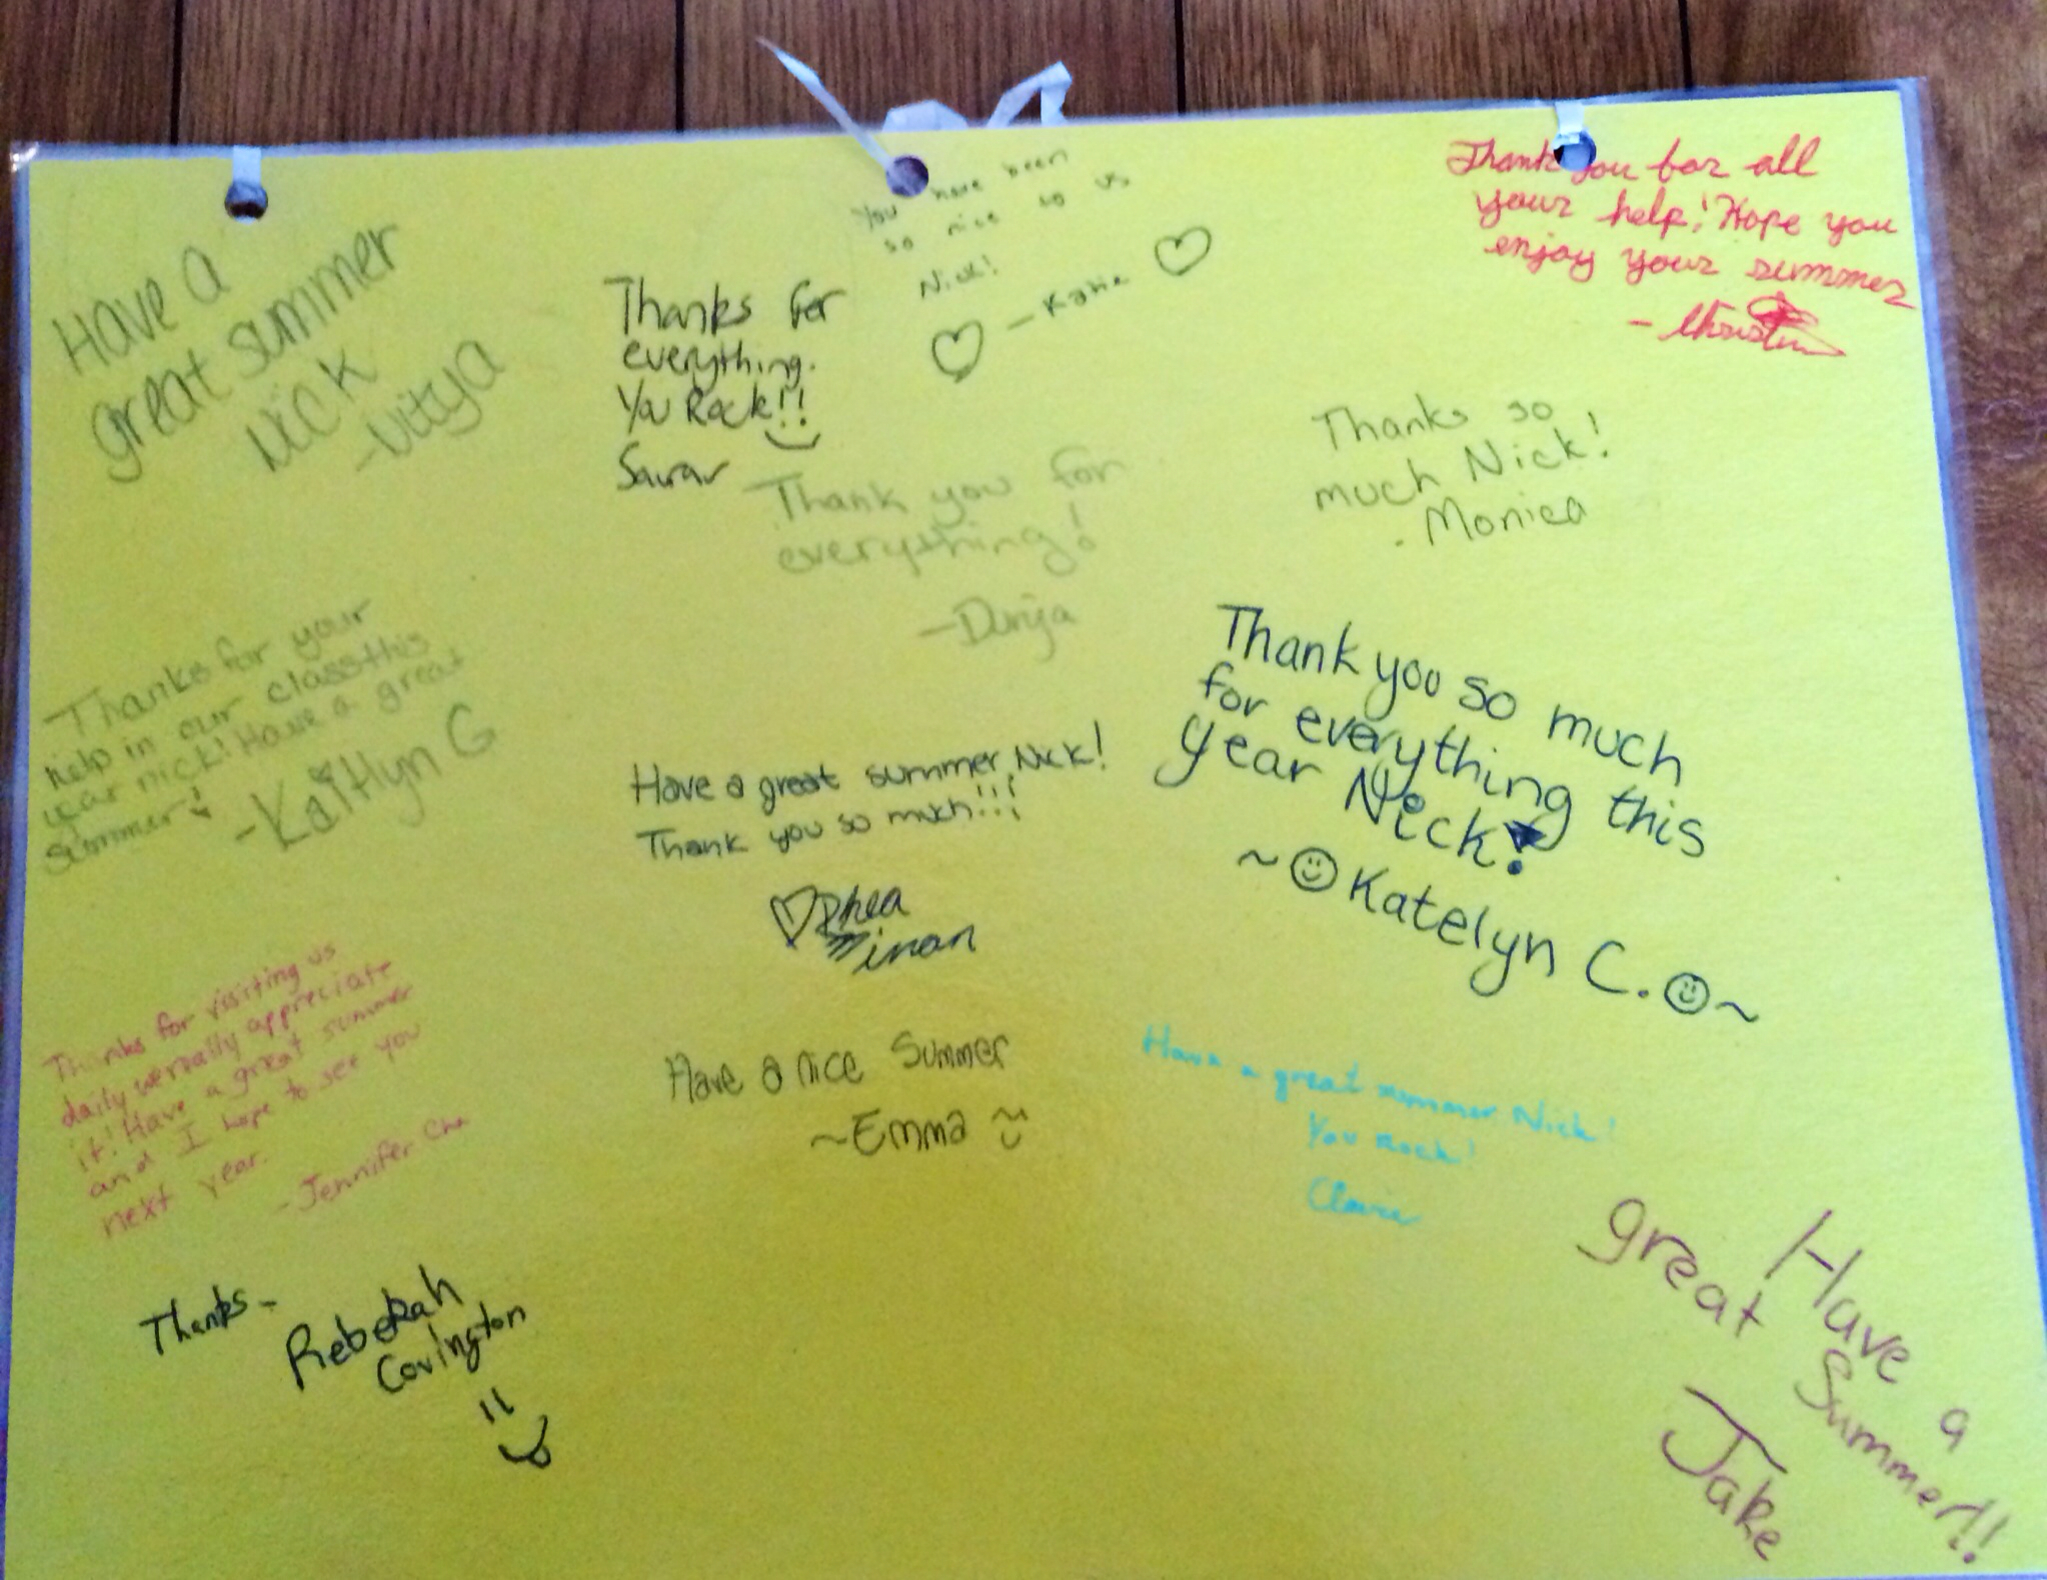 Have a
great summer
Nick
-Vitya
Thanks for
everything.
You Rock!!
Saurav
You have been
so nice to us
Nick!
-Katie
Thank you for all
your help! Hope you
enjoy your summer
Thank you for
everything!
-Dunja
Thanks so
much Nick!
- Monica
Thanks for your
help in our class this
year nick! Have a great
summer!
-Kaitlyn G
Have a great summer, Nick!
Thank you so much!!!
Rhea
Thank you so much
for everything this
year Nick!
~ Katelyn C. ~
Thanks for visiting us
daily we really appreciate
it! Have a great summer
and I hope to see you
next year.
-Jennifer Cha
Have a nice Summer
~Emma
Have a great summer Nick!
You Rock!
Claire
Thanks-
Rebekah
Covington
Have a
great Summer!!
Jake